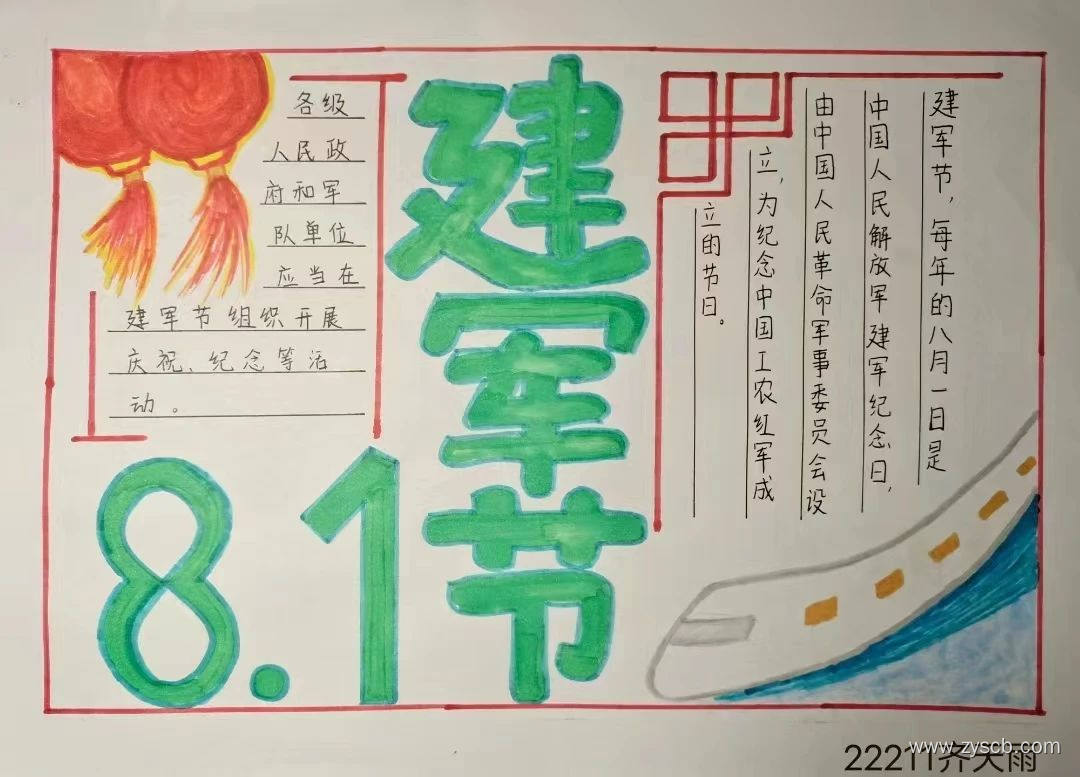 各级
人民政
府和军
队单位
应当在
建军节组织开展
庆祝、纪念等活
动。
建军节
8.1
建军节,每年的八月一日是
中国人民解放军建军纪念日,
由中国人民革命军事委员会设
立,为纪念中国工农红军成
立的节日。
www.zyscb.com
22211齐天雨